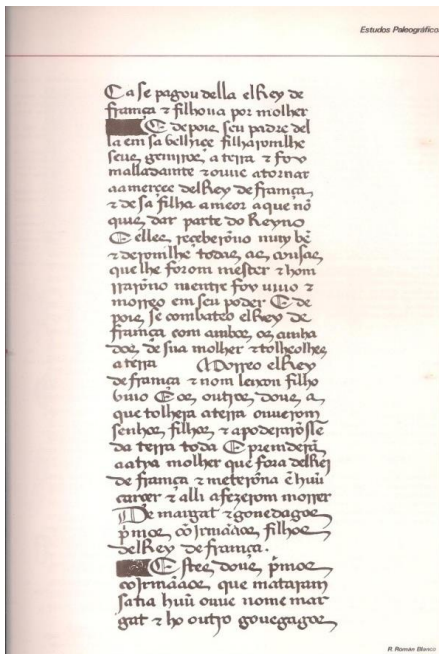 Estudos Paleográficos
Ca se pagou della elRey de
frança ⁊ filhoua por molher
E depois seu padre del
la em sa velhiçe filharomlhe
seus genrros a terra ⁊ foy
malladante ⁊ ouue atornar
aamerçee delRey de frança
⁊ de sa filha ameor aque nõ
quis dar parte do Reyno
E elles reçeberõno muy bẽ
⁊ deromlhe todas as cousas
que lhe forom mester ⁊ hom
rrarõno mentre foy uiuo ⁊
morreo em seu poder E de
pois se combateo elRey de
frança com ambos os cunha
dos de sua molher ⁊ tolheolhes
a terra Morreo elRey
de frança ⁊ nom leixou filho
viuo E os outros dous a
que tolhera aterra ouuerom
senhos filhos ⁊ apoderarõsse
da terra toda E prenderã
aatya molher que fora delRei
de frança ⁊ meterõna ẽ huũ
carçer ⁊ alli afezerom morrer
De margat ⁊ gonedagos
p̃mos cõ Jrmãaos filhos
delRey de frança.
Estes dous p̃mos
co Jrmãaos que mataram
satia huũ ouue nome mar
gat ⁊ ho outro gouegagos
R. Román Blanco